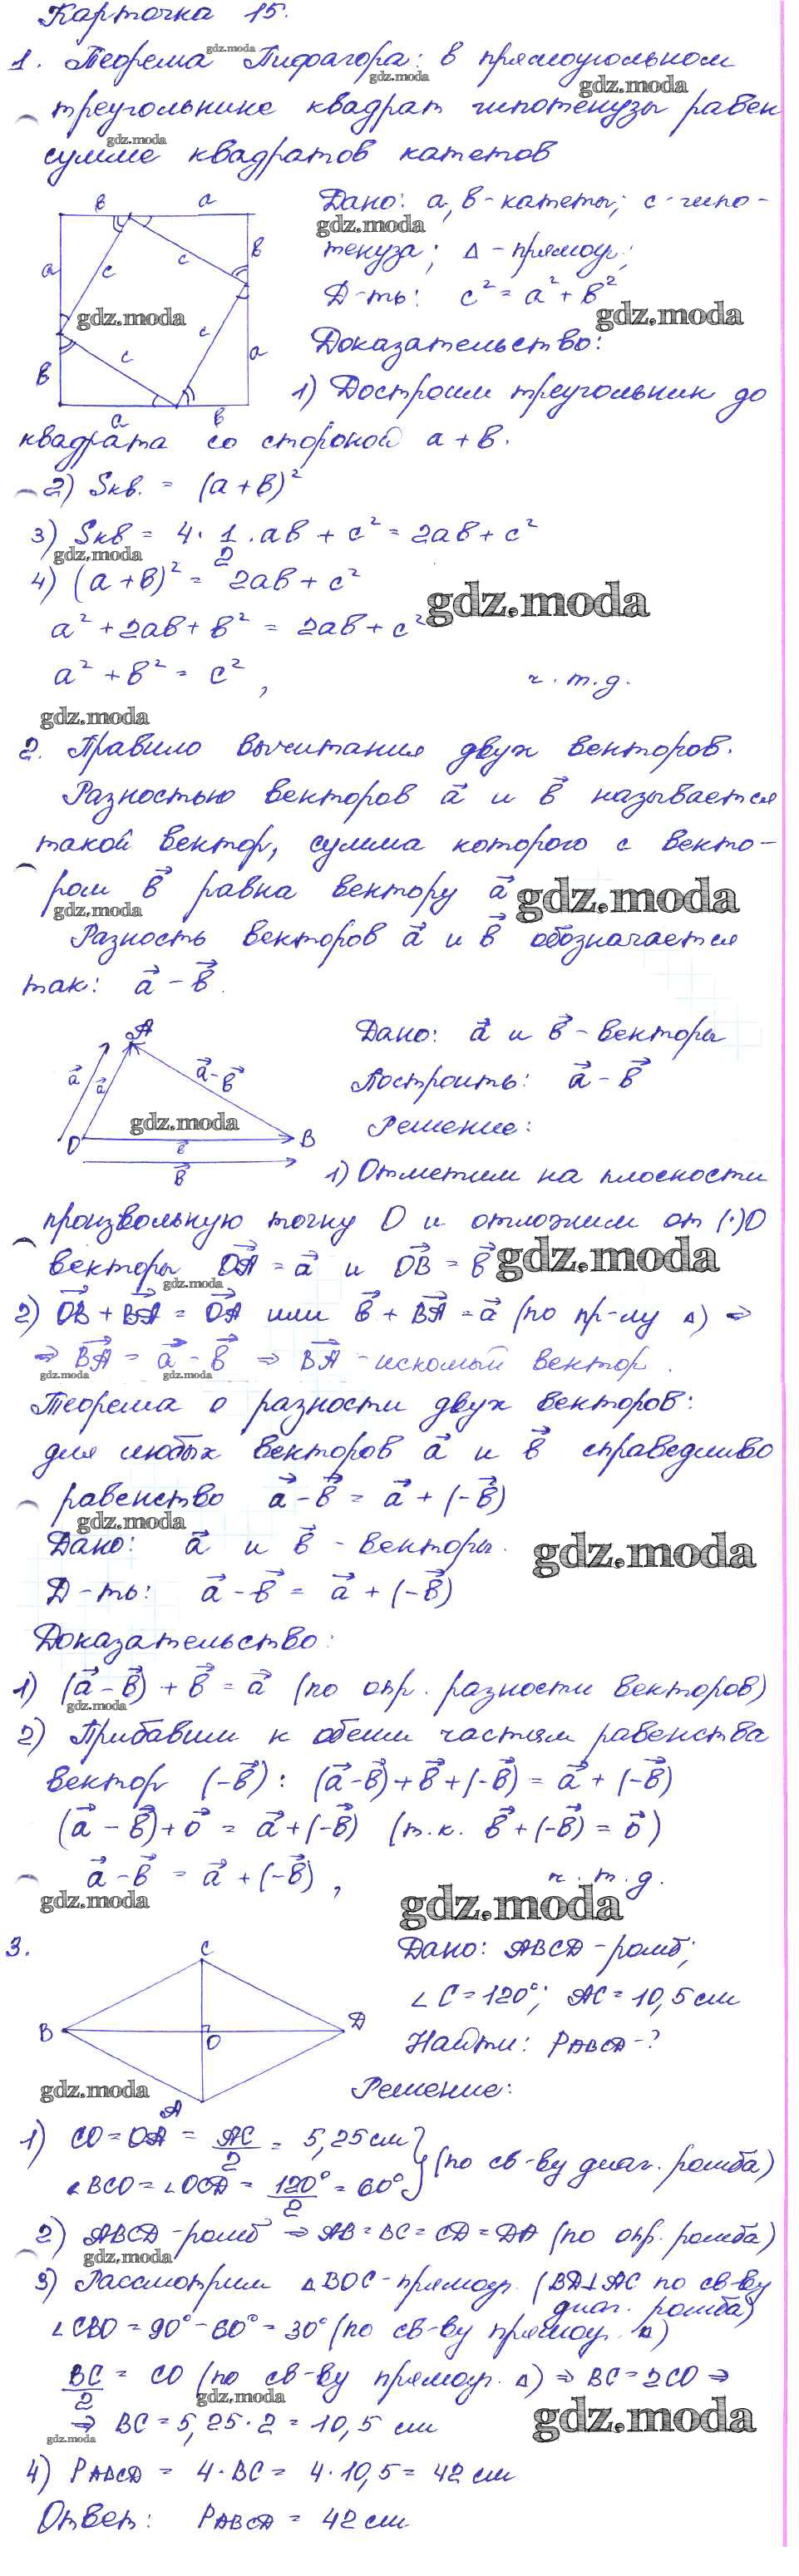 Карточка 15.
1. Теорема Пифагора: в прямоугольном
треугольнике квадрат гипотенузы равен
сумме квадратов катетов
Дано: a, b - катеты; c - гипо-
тенуза; Δ - прямоуг.;
Д-ть: c² = a² + b²
Доказательство:
1) Достроим треугольник до
квадрата со стороной a + b.
2) Sкв. = (a + b)²
3) Sкв = 4 · 1/2 · ab + c² = 2ab + c²
4) (a + b)² = 2ab + c²
a² + 2ab + b² = 2ab + c²
a² + b² = c², ч.т.д.
2. Правило вычитания двух векторов.
Разностью векторов a⃗ и b⃗ называется
такой вектор, сумма которого с векто-
ром b⃗ равна вектору a⃗
Разность векторов a⃗ и b⃗ обозначается
так: a⃗ - b⃗.
Дано: a⃗ и b⃗ - векторы
Построить: a⃗ - b⃗
Решение:
1) Отметим на плоскости
произвольную точку O и отложим от (·)O
векторы OA⃗ = a⃗ и OB⃗ = b⃗
2) OB⃗ + BA⃗ = OA⃗ или b⃗ + BA⃗ = a⃗ (по пр-лу Δ) ⇒
⇒ BA⃗ = a⃗ - b⃗ ⇒ BA⃗ - искомый вектор.
Теорема о разности двух векторов:
для любых векторов a⃗ и b⃗ справедливо
равенство a⃗ - b⃗ = a⃗ + (-b⃗)
Дано: a⃗ и b⃗ - векторы.
Д-ть: a⃗ - b⃗ = a⃗ + (-b⃗)
Доказательство:
1) (a⃗ - b⃗) + b⃗ = a⃗ (по опр. разности векторов)
2) Прибавим к обеим частям равенства
вектор (-b⃗): (a⃗ - b⃗) + b⃗ + (-b⃗) = a⃗ + (-b⃗)
(a⃗ - b⃗) + 0⃗ = a⃗ + (-b⃗) (т.к. b⃗ + (-b⃗) = 0⃗)
a⃗ - b⃗ = a⃗ + (-b⃗), ч.т.д.
3.
Дано: ABCD - ромб;
∠C = 120°; AC = 10,5 см
Найти: PABCD - ?
Решение:
1) CO = OA = AC/2 = 5,25 см
∠BCO = ∠OCD = 120°/2 = 60° } (по св-ву диаг. ромба)
2) ABCD - ромб ⇒ AB = BC = CD = DA (по опр. ромба)
3) Рассмотрим ΔBOC - прямоуг. (BD⊥AC по св-ву
диаг. ромба)
∠CBO = 90° - 60° = 30° (по св-ву прямоуг. Δ)
BC/2 = CO (по св-ву прямоуг. Δ) ⇒ BC = 2CO ⇒
⇒ BC = 5,25 · 2 = 10,5 см
4) PABCD = 4 · BC = 4 · 10,5 = 42 см
Ответ: PABCD = 42 см